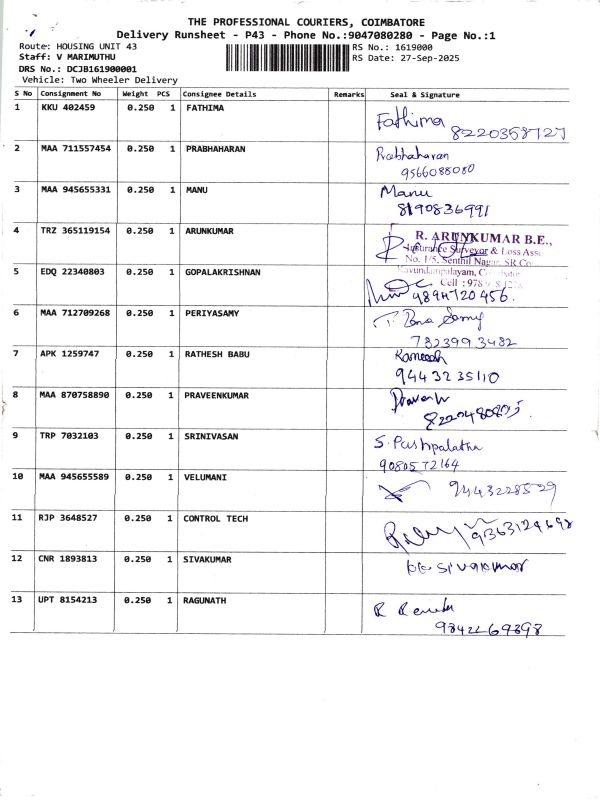 THE PROFESSIONAL COURIERS, COIMBATORE
Delivery Runsheet - P43 - Phone No.:9047080280 - Page No.:1
Route: HOUSING UNIT 43 RS No.: 1619000
Staff: V MARIMUTHU RS Date: 27-Sep-2025
DRS No.: DCJB161900001
Vehicle: Two Wheeler Delivery
S No Consignment No Weight PCS Consignee Details Remarks Seal & Signature
1 KKU 402459 0.250 1 FATHIMA Fathima
8220358727
2 MAA 711557454 0.250 1 PRABHAHARAN Prabhaharan
9566088080
3 MAA 945655331 0.250 1 MANU Manu
8190836991
4 TRZ 365119154 0.250 1 ARUNKUMAR R. ARUNKUMAR B.E.,
Insurance Surveyor & Loss Asse
No. 1/5, Senthil Nagar, SR Co
5 EDQ 22340803 0.250 1 GOPALAKRISHNAN Kavundampalayam,
Cell : 978
9894720456.
6 MAA 712709268 0.250 1 PERIYASAMY
7823993482
7 APK 1259747 0.250 1 RATHESH BABU
9443235110
8 MAA 870758890 0.250 1 PRAVEENKUMAR
9 TRP 7032103 0.250 1 SRINIVASAN S. Pushpalatha
9080572164
10 MAA 945655589 0.250 1 VELUMANI 9443228529
11 RJP 3648527 0.250 1 CONTROL TECH
12 CNR 1893813 0.250 1 SIVAKUMAR sivakumar
13 UPT 8154213 0.250 1 RAGUNATH